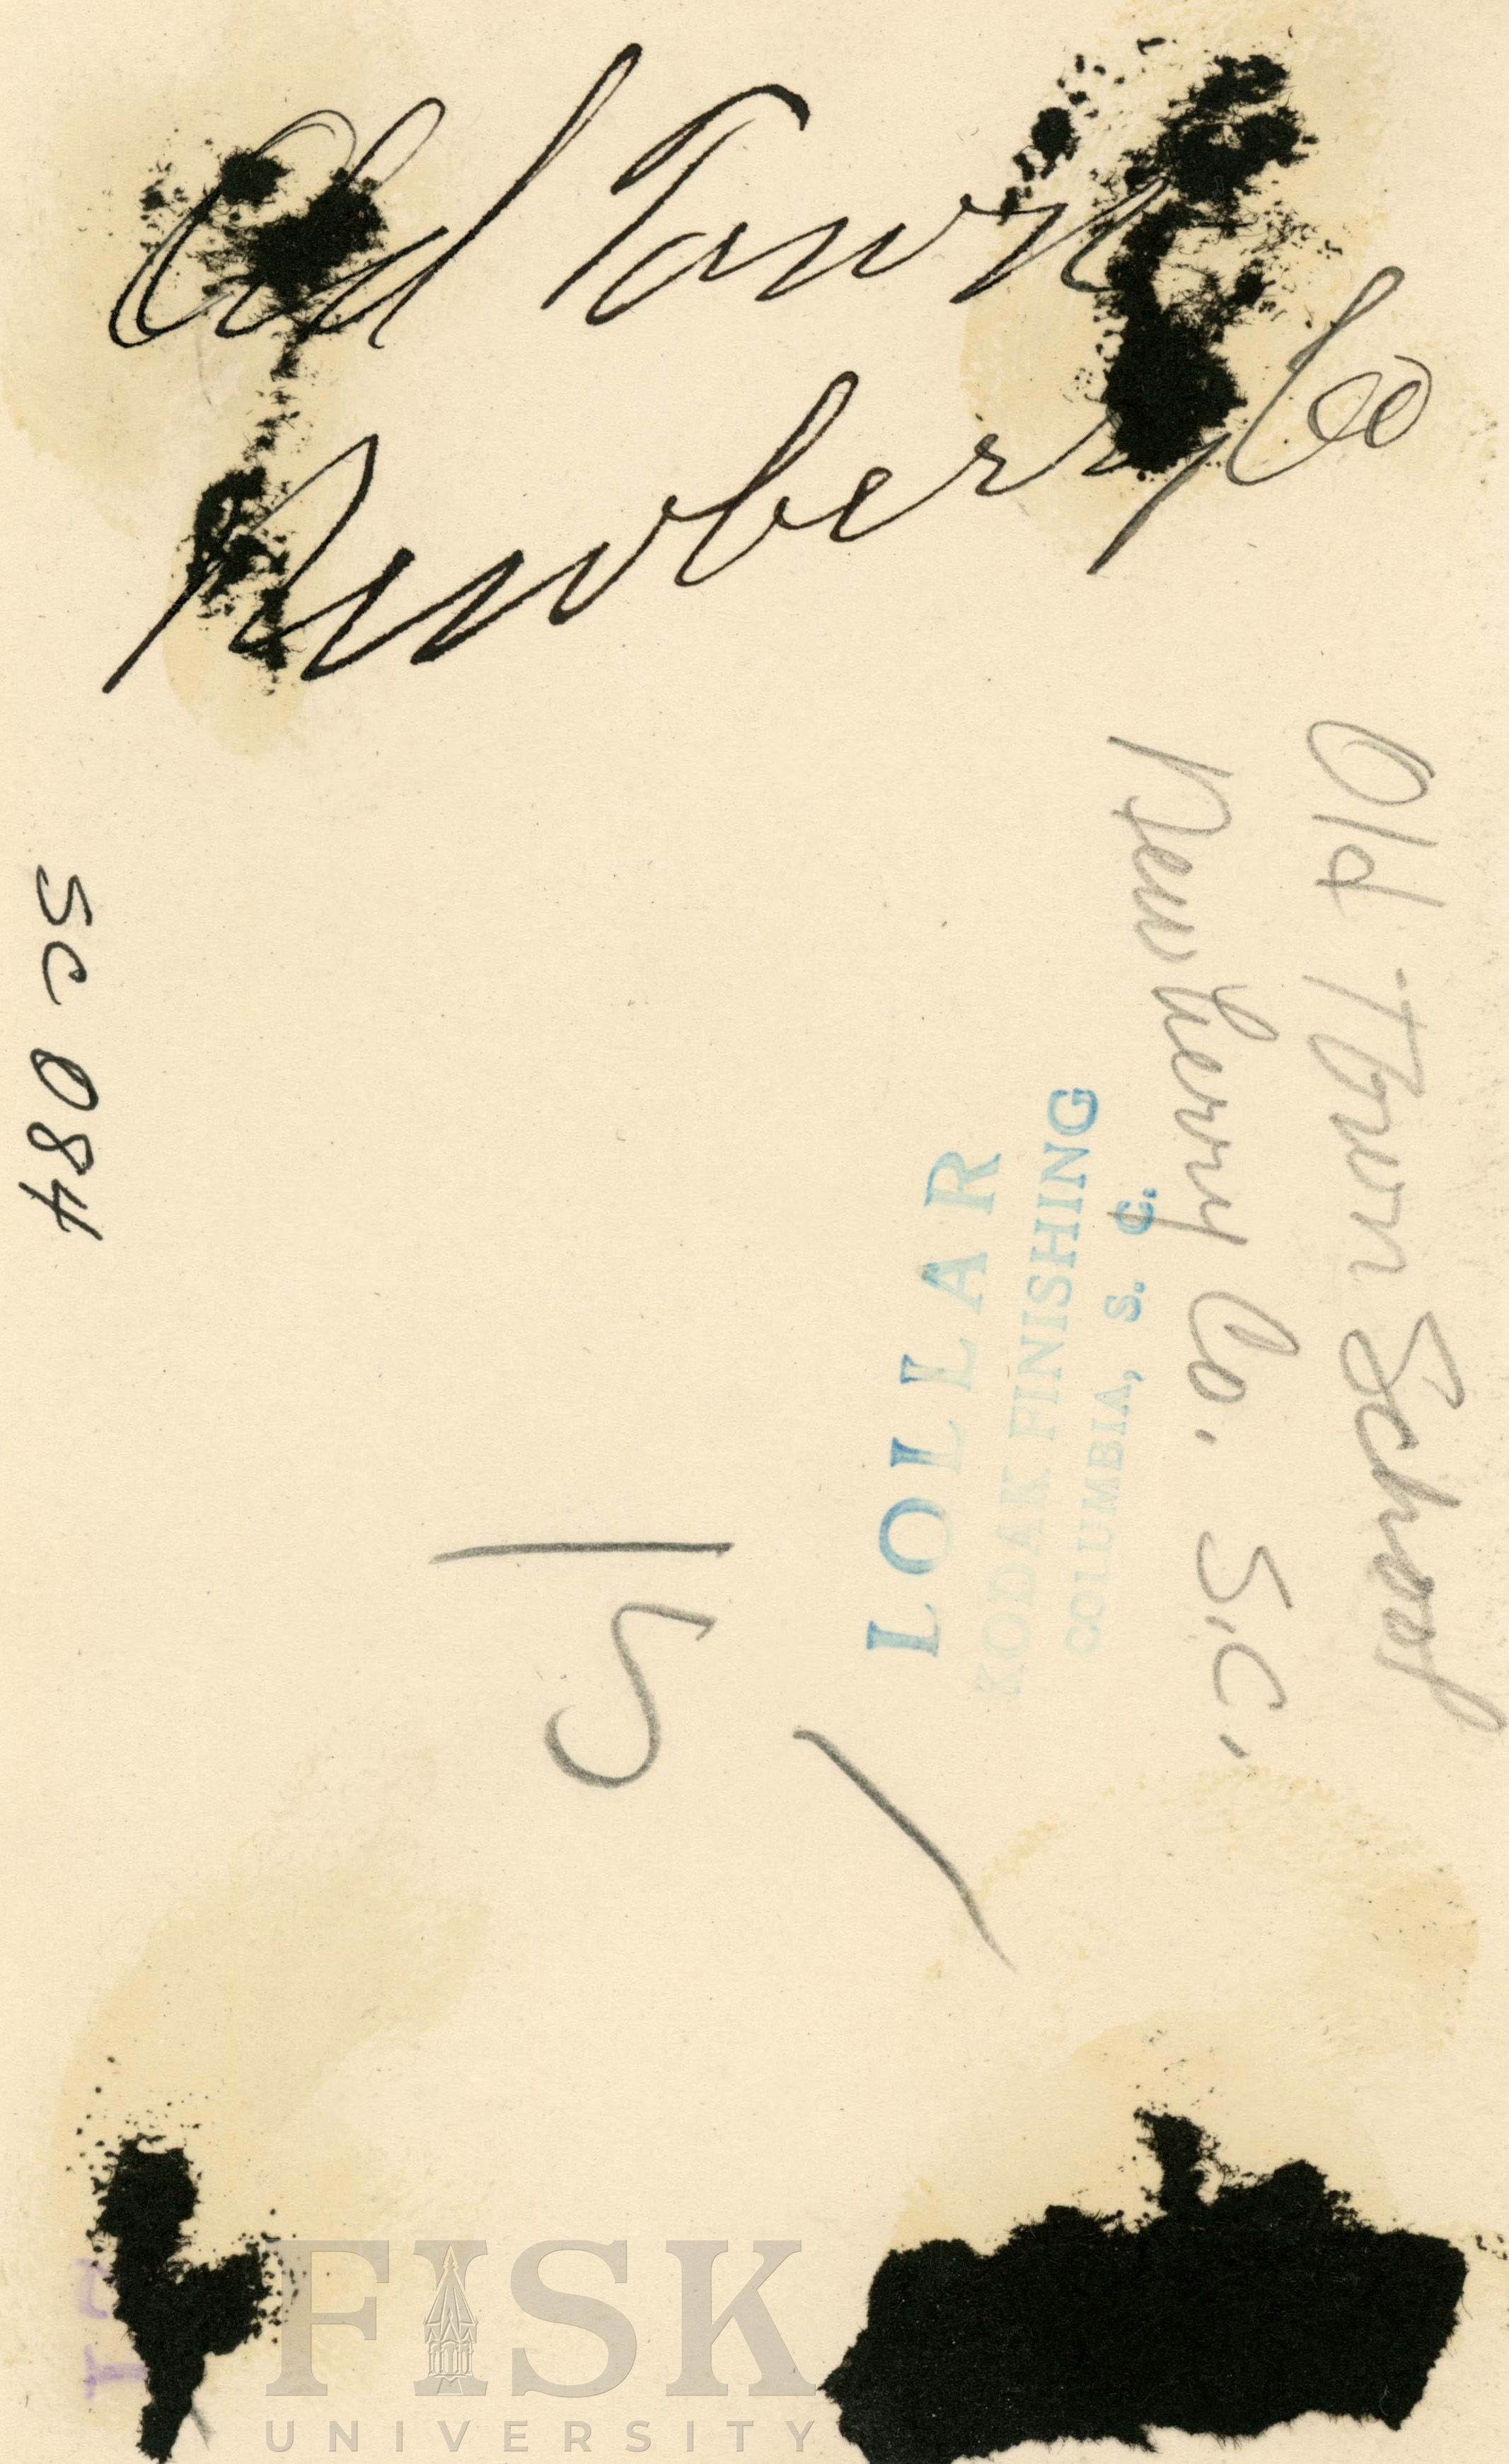 Old Town
Newberry Co
Old Town School
Newberry Co. S.C.
LOLLAR
KODAK FINISHING
COLUMBIA, S. C.
SC 084
15
FISK
UNIVERSITY